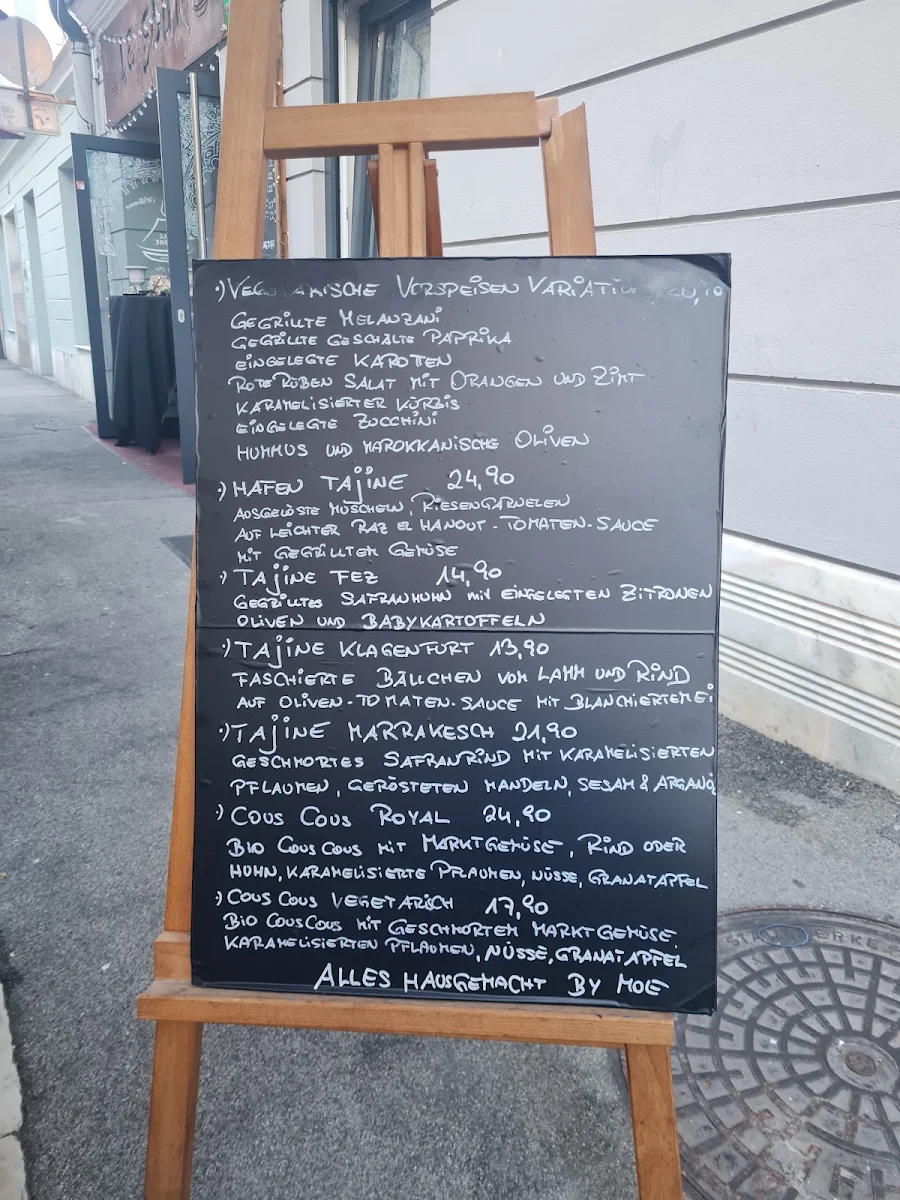 ·) VEGETARISCHE VORSPEISEN VARIATION
GEGRILLTE MELANZANI
GEGRILLTE GESCHÄLTE PAPRIKA
EINGELEGTE KAROTTEN
ROTE RÜBEN SALAT MIT ORANGEN UND ZIMT
KARAMELISIERTER KÜRBIS
EINGELEGTE ZUCCHINI
HUMMUS UND MAROKKANISCHE OLIVEN
·) HAFEN TAJINE 24,90
AUSGELÖSTE MUSCHELN, RIESENGARNELEN
AUF LEICHTER RAZ EL HANOUT - TOMATEN - SAUCE
MIT GEGRILLTEM GEMÜSE
·) TAJINE FEZ 14,90
GEGRILLTES SAFRANHUHN MIT EINGELEGTEN ZITRONEN
OLIVEN UND BABYKARTOFFELN
·) TAJINE KLAGENFURT 13,90
FASCHIERTE BÄLLCHEN VOM LAMM UND RIND
AUF OLIVEN-TOMATEN-SAUCE MIT BLANCHIERTEM EI
·) TAJINE MARRAKESCH 21,90
GESCHMORTES SAFRANRIND MIT KARAMELISIERTEN
PFLAUMEN, GERÖSTETEN MANDELN, SESAM & ARGANÖ
·) COUS COUS ROYAL 24,90
BIO COUS COUS MIT MARKTGEMÜSE, RIND ODER
HUHN, KARAMELISIERTE PFLAUMEN, NÜSSE, GRANATAPFEL
·) COUS COUS VEGETARISCH 17,90
BIO COUSCOUS MIT GESCHMORTEM MARKTGEMÜSE
KARAMELISIERTEN PFLAUMEN, NÜSSE, GRANATAPFEL
ALLES HAUSGEMACHT BY MOE